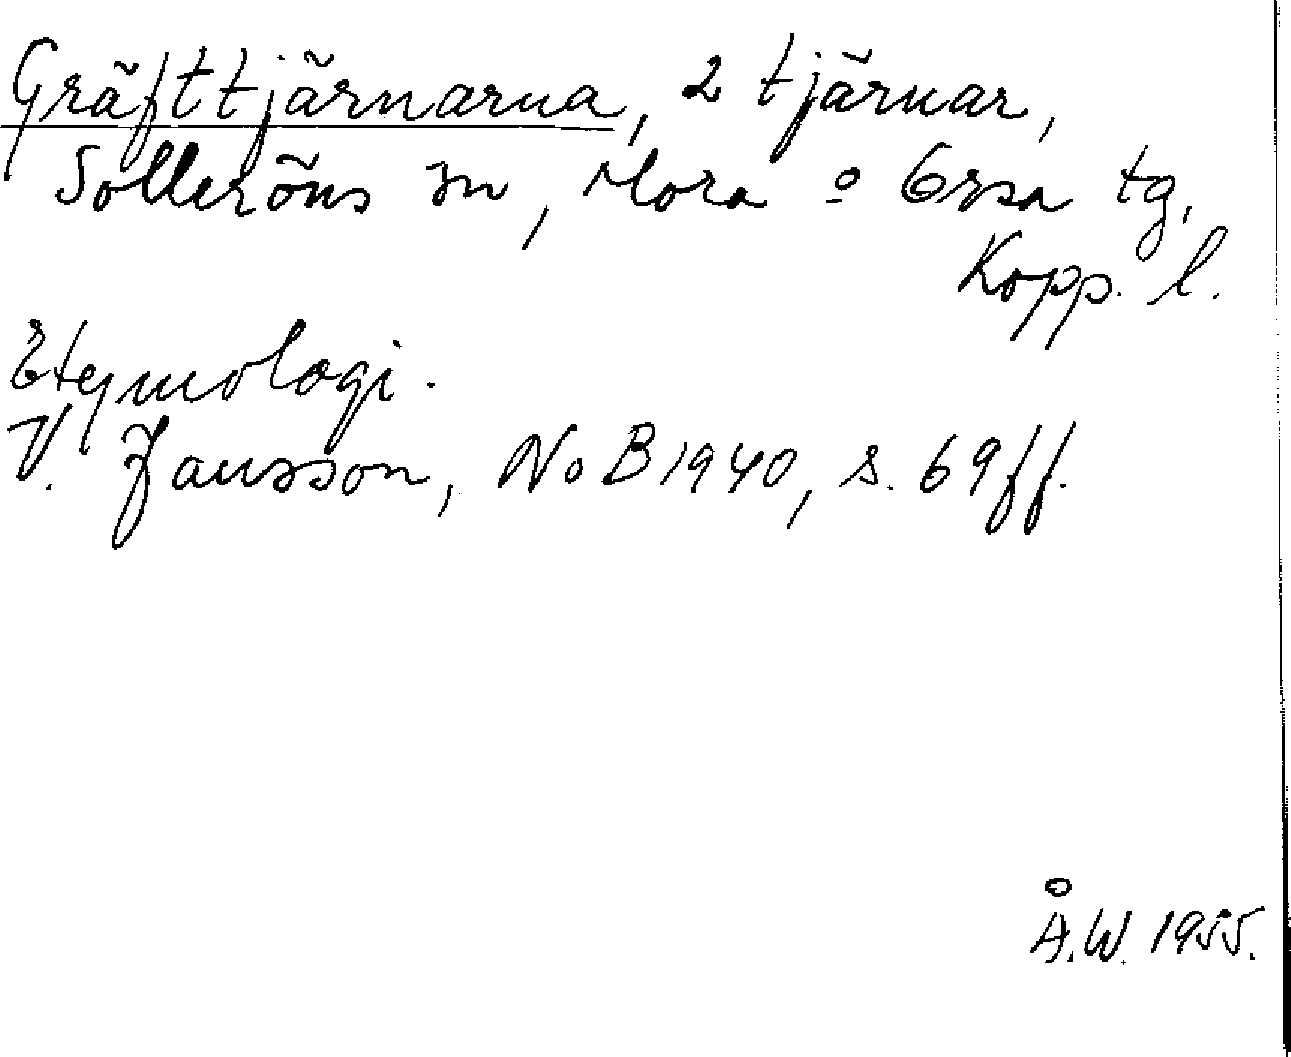 Gräfttjärnarna, 2 tjärnar,
Solleröns sn, Mora o Orsa tg,
Kopp. l.
Etymologi.
V. Jansson, NoB 1940, s. 69 ff.
Å.W. 1955.